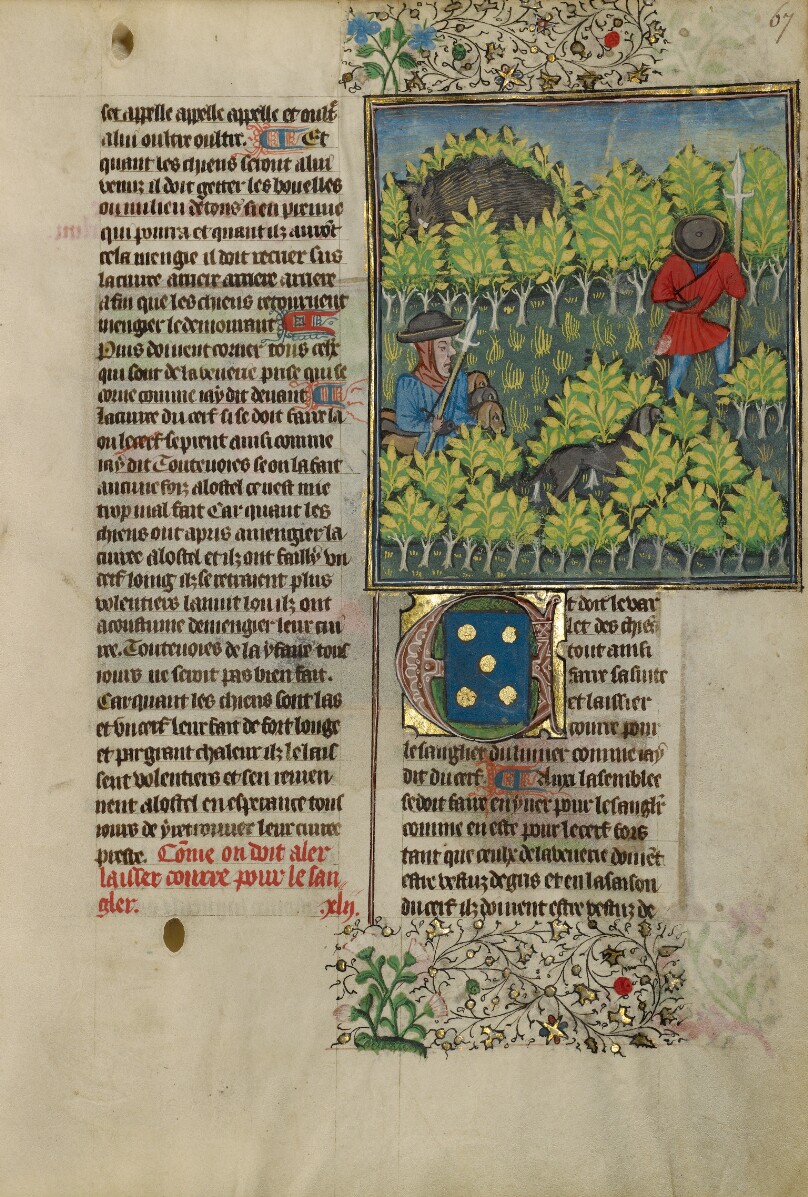 67
set appelle appelle appelle et oult
alui oultre oultre. Et
quant les chiens seront alui
venuz il doit getter les bouelles
ou milieu de tous si en preingne
qui pourra et quant ilz auront
cela mengie il doit recuer sus
la cuiree arriere arriere arriere
afin que les chiens retournent
mengier le demourant
Puis doiuent corner tous ceulx
qui sont de la venerie prise qui se
corne comme iay dit deuant
la cuiree du cerf si se doit faire la
ou le cerf se prent ainsi comme
iay dit Toutevoies se on la fait
aucune foiz alostel ce nest mie
trop mal fait Car quant les
chiens ont apris amengier la
cuiree alostel et ilz ont failly vn
cerf loing ilz se retraient plus
volentiers la nuit lou ilz ont
acoustume de mengier leur cui
ree. Toutevoies de la y faire tous
iours ne seroit pas bien fait.
Car quant les chiens sont las
et vn cerf leur fait de fort longe
et par grant chaleur ilz le lais
sent volentiers et sen reuien
nent alostel en esperance tous
iours de y retrouuer leur cuiree
preste. Cōme on doit aler
laisser courre pour le san
gler. .xlij.
Et doit le var
let des chiēs
tout ainsi
faire sa suite
et laissier
courre pour
le sanglier du limier comme iay
dit du cerf. Aux lasemblee
se doit faire en yuer pour le sanglr
comme en este pour le cerf fors
tant que ceulx de la venerie doiuēt
estre vestuz de gris et en la saison
du cerf ilz doiuent estre vestuz de